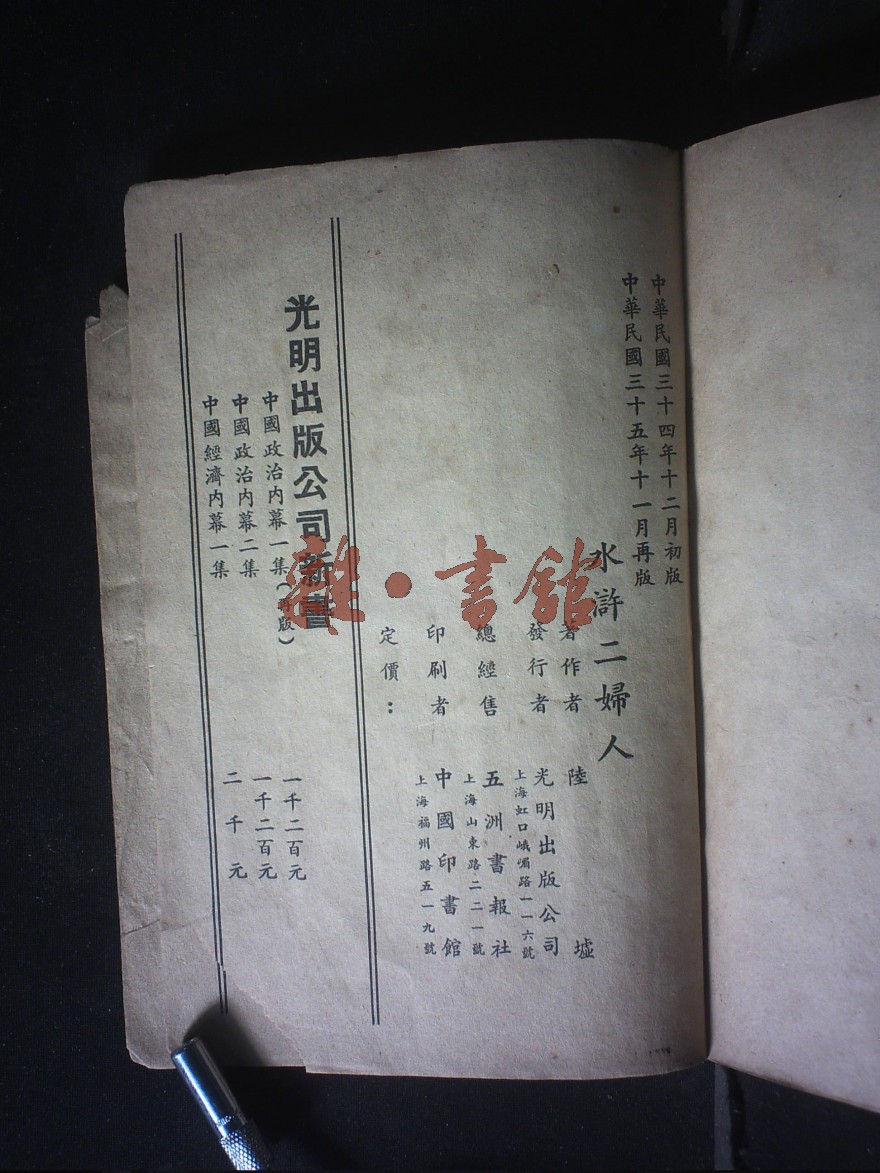 中華民國三十四年十二月初版
中華民國三十五年十一月再版
水滸二婦人
著作者 陸墟
發行者 光明出版公司
上海虹口峨嵋路一一六號
總經售 五洲書報社
上海山東路二二一號
印刷者 中國印書館
上海福州路五一九號
定價：
光明出版公司新書
中國政治內幕一集（再版） 一千二百元
中國政治內幕二集 一千二百元
中國經濟內幕一集 二千元
雜·書館